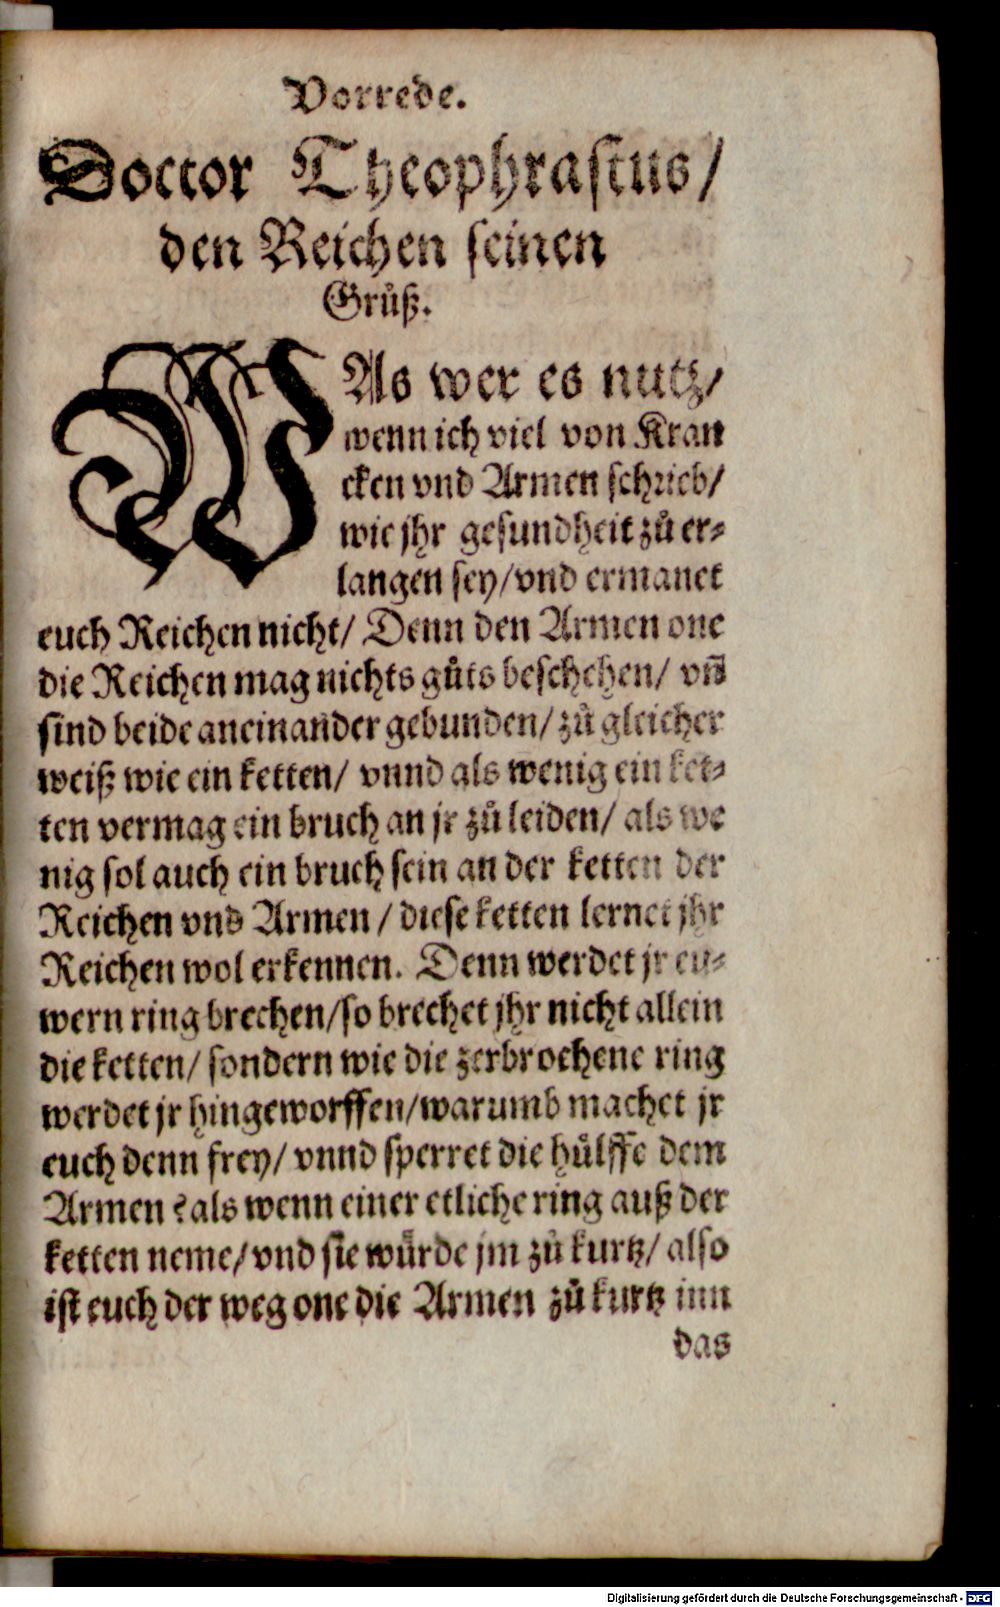 Vorrede.
Doctor Theophrastus/
den Reichen seinen
Grůß.
WAs wer es nutz/
wenn ich viel von Kran
cken vnd Armen schrieb/
wie jhr gesundheit zů er⸗
langen sey/vnd ermanet
euch Reichen nicht/ Denn den Armen one
die Reichen mag nichts gůts beschehen/ vñ
sind beide aneinander gebunden/ zů gleicher
weiß wie ein ketten/ vnnd als wenig ein ket⸗
ten vermag ein bruch an jr zů leiden/ als we
nig sol auch ein bruch sein an der ketten der
Reichen vnd Armen / diese ketten lernet jhr
Reichen wol erkennen. Denn werdet jr eu⸗
wern ring brechen/so brechet jhr nicht allein
die ketten/ sondern wie die zerbrochene ring
werdet jr hingeworffen/warumb machet jr
euch denn frey/ vnnd sperret die hülffe dem
Armen? als wenn einer etliche ring auß der
ketten neme/vnd sie würde jm zů kurtz/ also
ist euch der weg one die Armen zů kurtz inn
das
Digitalisierung gefördert durch die Deutsche Forschungsgemeinschaft - DFG